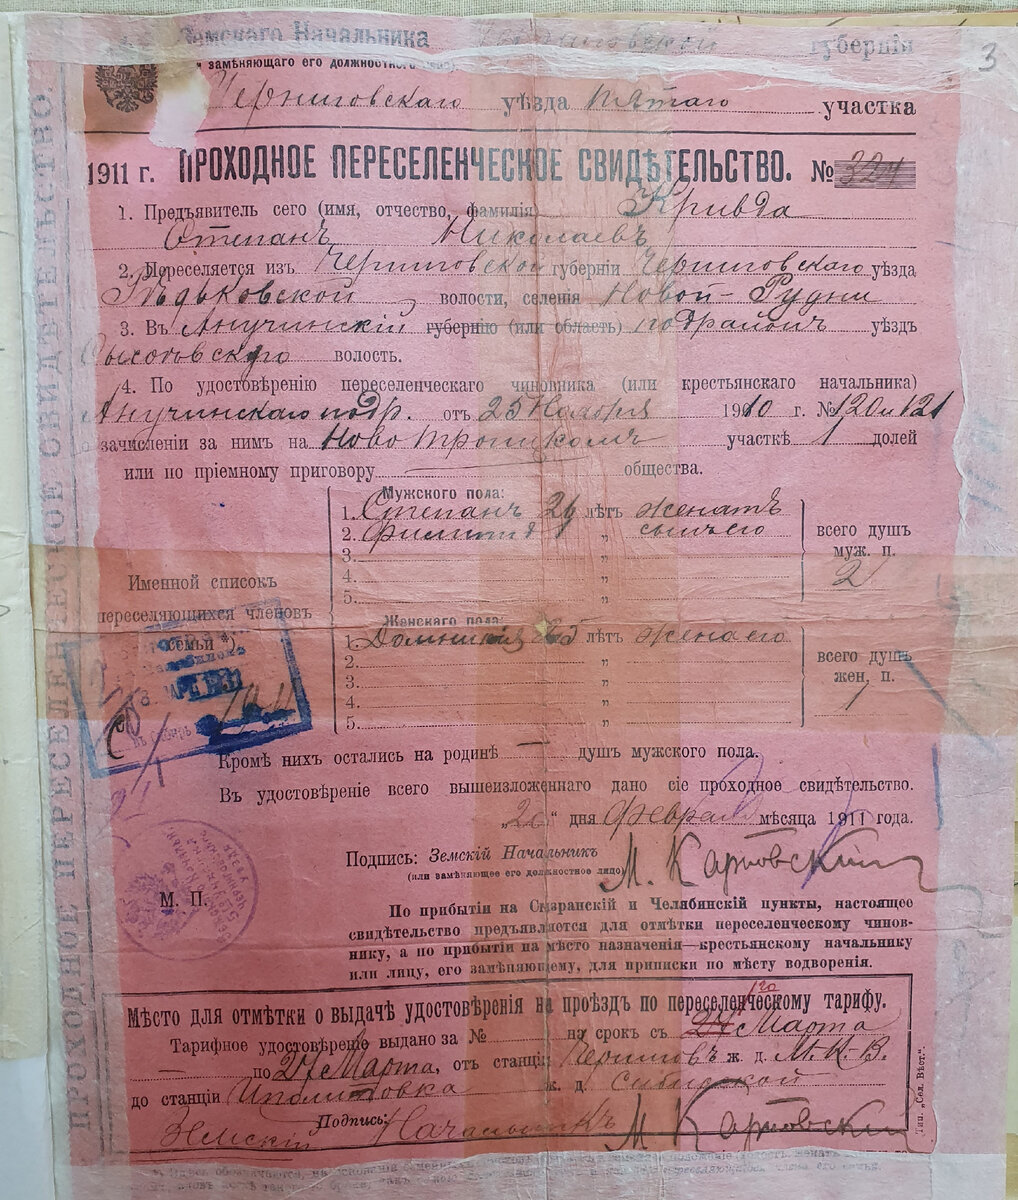 Земскаго Начальника Черниговской губерніи
и замѣняющаго его должностного лица)
Черниговскаго уѣзда пятаго участка
3
1911 г. ПРОХОДНОЕ ПЕРЕСЕЛЕНЧЕСКОЕ СВИДѢТЕЛЬСТВО. № 324
1. Предъявитель сего (имя, отчество, фамилія) Кривда
Степанъ Николаевъ
2. Переселяется изъ Черниговской губерніи Черниговскаго уѣзда
Рѣдьковской волости, селенія Новой-Рудни
3. Въ Анучинскій губернію (или область) подрайонъ уѣздъ
волость.
4. По удостовѣренію переселенческаго чиновника (или крестьянскаго начальника)
Анучинскаго подр. отъ 25 Ноября 1910 г. № 120 и 121
зачисленіи за нимъ на Ново Троицкомъ участкѣ 1 долей
или по пріемному приговору общества.
Мужского пола:
1. Степанъ 26 лѣтъ женатъ
2. Филиппъ 1 " сынъ его
3. "
4. "
5. "
всего душъ
муж. п.
2
Именной списокъ
переселяющихся членовъ
семьи *)
Женскаго пола:
1. Домникія 25 лѣтъ жена его
2. "
3. "
4. "
5. "
всего душъ
жен. п.
1
Кромѣ нихъ остались на родинѣ — душъ мужского пола.
Въ удостовѣреніе всего вышеизложеннаго дано сіе проходное свидѣтельство.
"20" дня февраля мѣсяца 1911 года.
Подпись: Земскій Начальникъ М. Карповскій
(или замѣняющее его должностное лицо)
М. П.
По прибытіи на Сызранскій и Челябинскій пункты, настоящее
свидѣтельство предъявляется для отмѣтки переселенческому чинов-
нику, а по прибытіи на мѣсто назначенія—крестьянскому начальнику
или лицу, его замѣняющему, для приписки по мѣсту водворенія.
Мѣсто для отмѣтки о выдачѣ удостовѣренія на проѣздъ по переселенческому тарифу.
Тарифное удостовѣреніе выдано за № на срокъ съ 20 Марта
— по 27 Марта, отъ станціи Черниговъ ж. д. М.-К.-В.
до станціи Ипполитовка ж. д. Сибирской
Подпись: Земскій Начальникъ М Карповскій
Тип. „Сел. Вѣст."
ПРОХОДНОЕ ПЕРЕСЕЛЕНЧЕСКОЕ СВИДѢТЕЛЬСТВО.